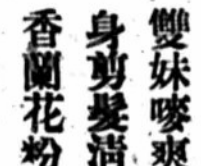 雙妹嘜爽
身剪髮清
香蘭花粉